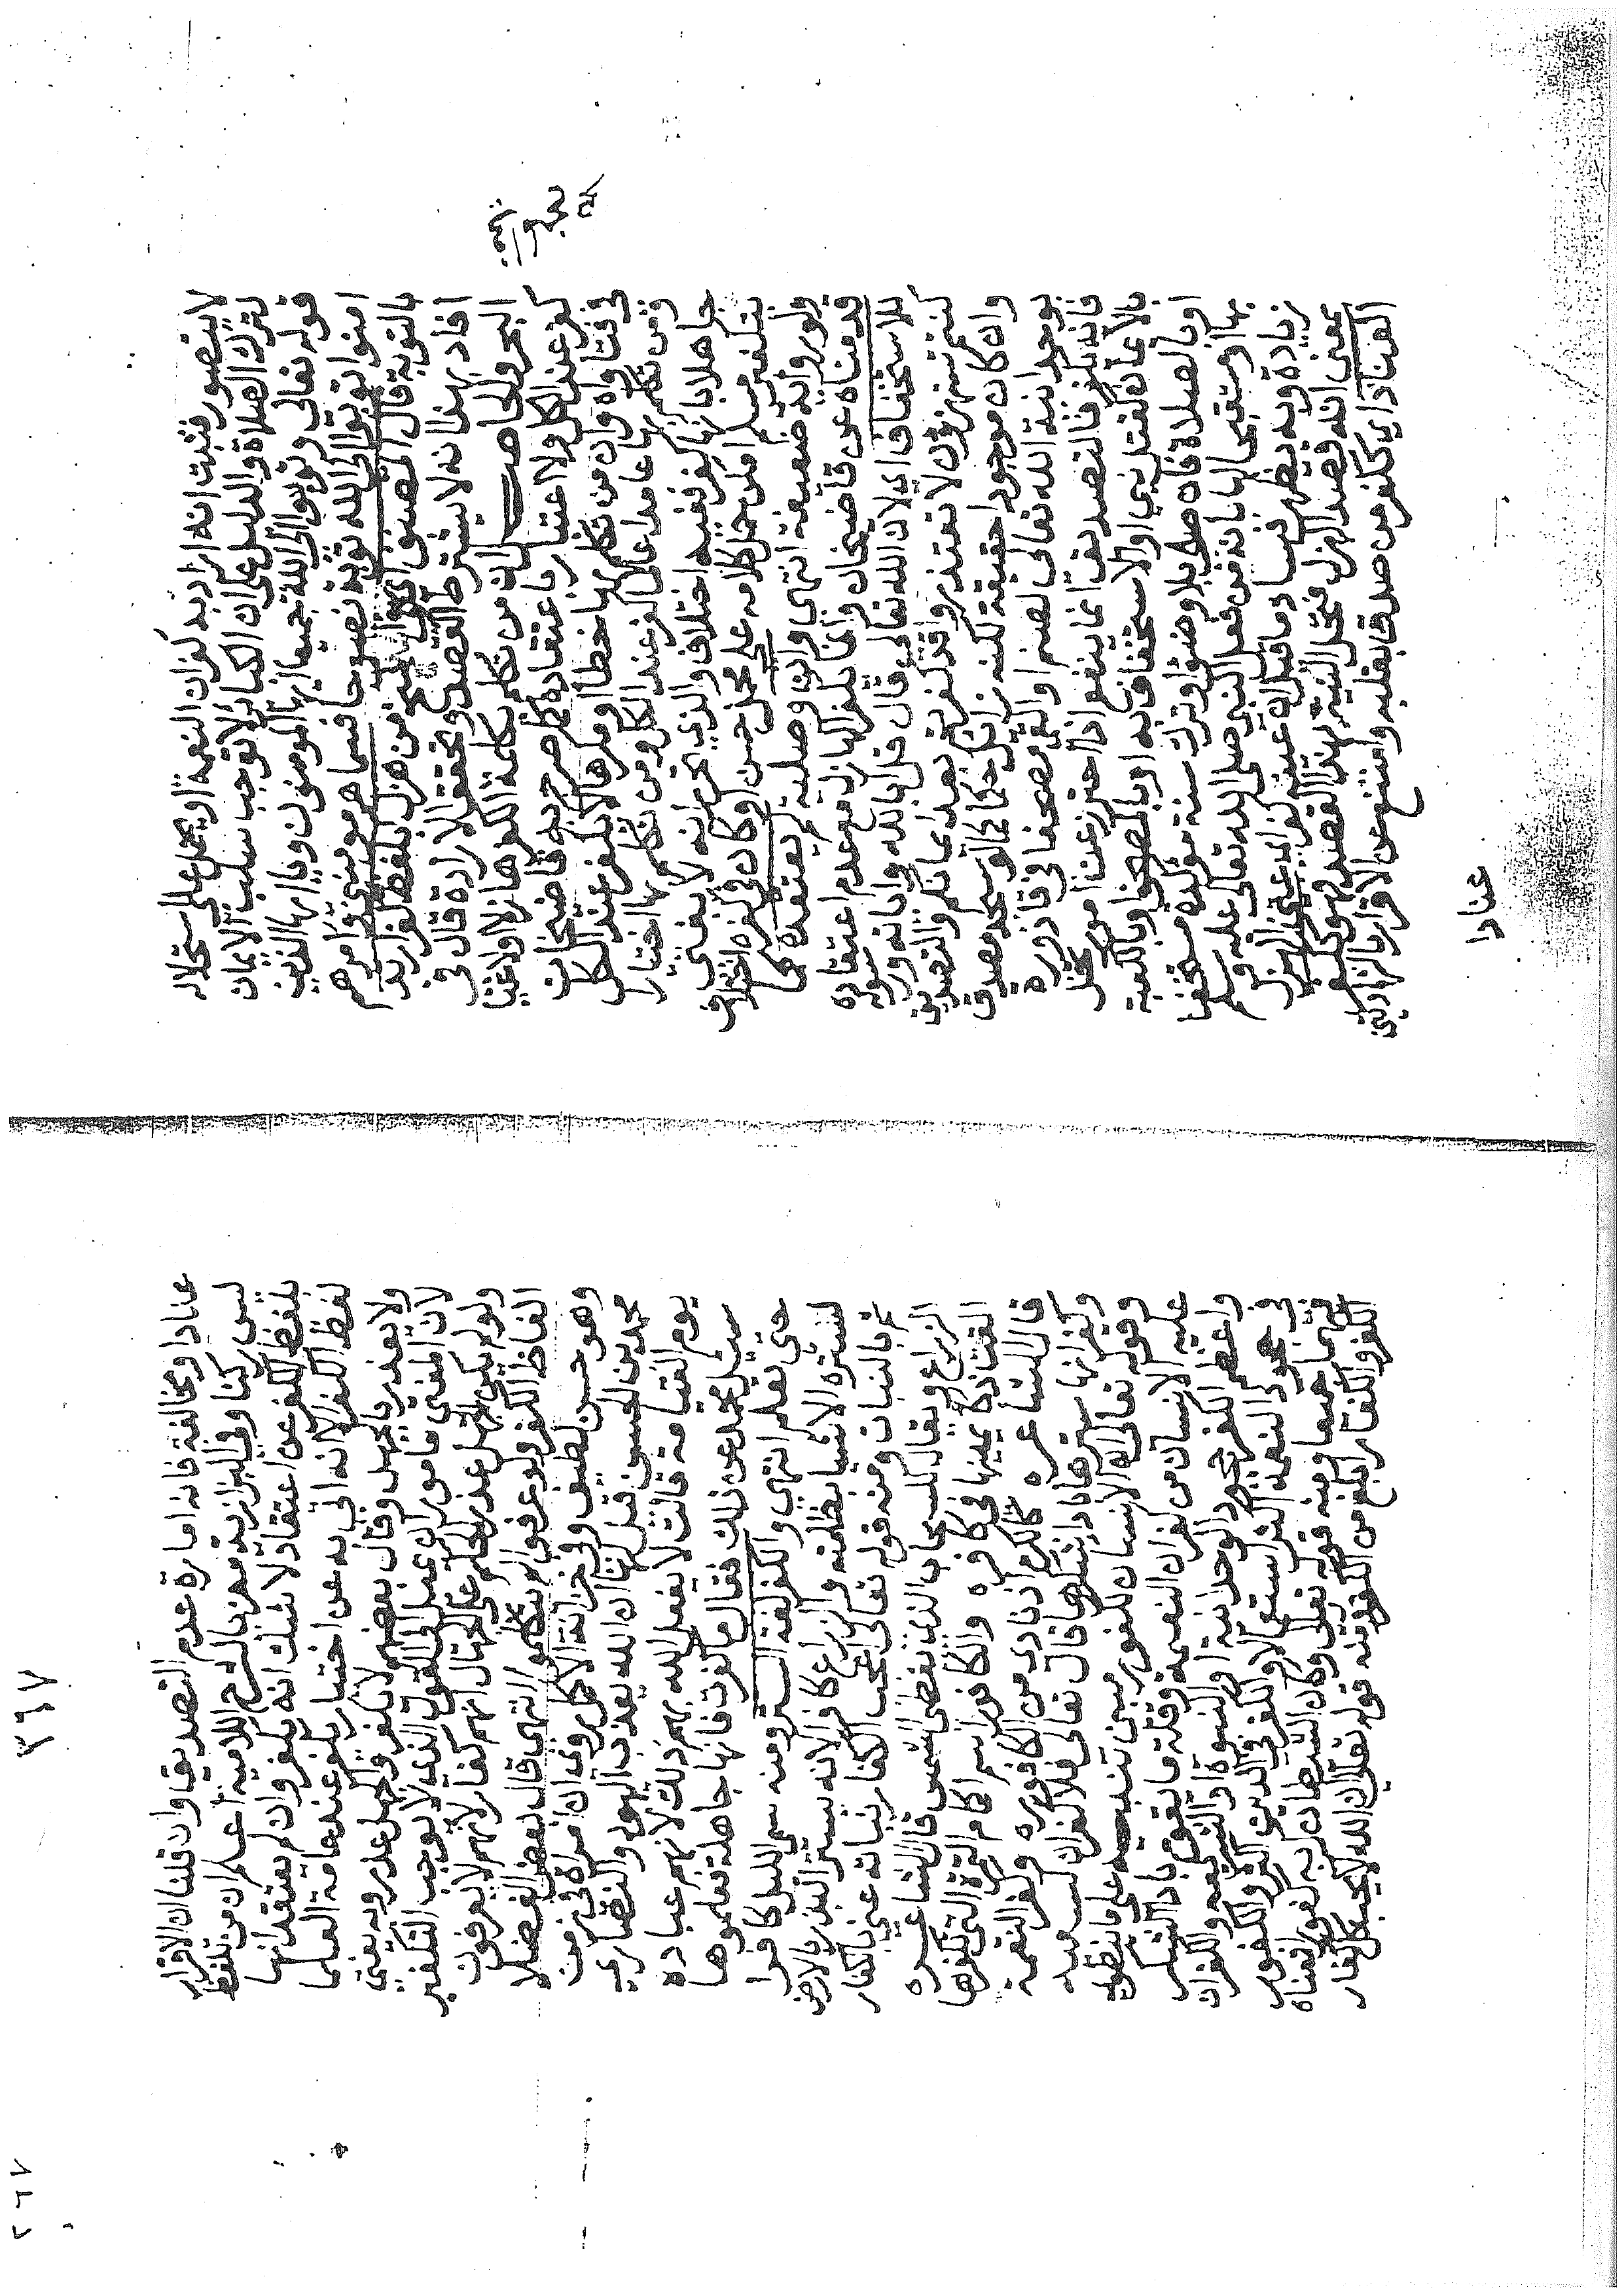 لا يتصور فثبت انه اراد به كفران النعمة او يحمل على استحلاله
لترك الصلاة والدليل على ان الكبائر لا توجب سلب الايمان
قوله تعالى وتوبوا الى الله جميعا ايها المومنون ويا ايها الذين
امنوا توبوا الى الله توبة نصوحا فسماهم مومنين وامرهم
بالتوبة قال المصنف من هزل بلفظ كفر ارتد
افاد بهذا انه لا يشترط القصد وتحقق الارادة قال في
البحر والحاصل ان من تكلم بكلمة الكفر هازلا او لاعبا
كفر عند الكل ولا اعتبار باعتقاده كما صرح به قاضيخان
في فتاواه وان من تكلم بها خطأ او مكرها لا يكفر عند الكل
ومن تكلم بها عامدا عالما كفر عند الكل ومن تكلم بها اختيارا
جاهلا بانها كفر ففيه اختلاف والذي تحرر انه لا يفتى
بتكفير مسلم امكن حمل كلامه على محمل حسن او كان في كفره اختلاف
ولو رواية ضعيفة انتهى وان وصلية لم يعتقده كما
قدمناه عن قاضيخان وانما يكفر الهازل مع عدم اعتقاده
للاستخفاف اي لان الله تعالى قال قل ابالله واياته ورسوله
كنتم تستهزؤن لا تعتذروا قد كفرتم بعد ايمانكم والتصديق
وان كان موجودا حقيقة لكنه زائل حكما كما لو سجد مصدق
بوحدانية الله تعالى لصنم او القى مصحفا في قاذورة
فانه يكفر فالتصديق انما ينفع اذا احترز من يخل
بالايمان كقتل نبي او الاستخفاف به او بالمصحف او بالكعبة
او بالصلاة كان صلى بلا وضوء او ترك سنة مؤكدة مستخفا
بها او مستقبحا لها بانها من فعل النبي صلى الله تعالى عليه وسلم
زيادة وبه يظهر فساد ما قيل ان كفر اي الهزل
بمعنى انه قصد الهزل بهذا القصد فهو ككفر
العناد اي ككفر من صدق بقلبه وامتنع عن الاقرار بالشهادتين
عنادا
٣٦٧
عنادا ومخالفة فانه امارة عدم التصديق وان قلنا ان الاقرار
ليس ركنا وفي البزازية معزيا لشرح اللامية اعلم ان من تلفظ
بلفظ الكفر عن اعتقاد لا شك انه يكفر وان لم يعتقد انها
لفظ الكفر الا انه اتى به عن اختيار يكفر عند عامة العلما
ولا يعذر بالجهل وقال بعضهم لا يكفر والجهل عذر وبه يفتى
لان المفتي مامور ان يميل الى القول الذي لا يوجب التكفير
ولو لم يكن الجهل عذرا لحكم على الجهال انهم كفار لانهم لا يعرفون
الفاظ الكفر ولو عرفوا لم يتكلموا انتهى قال بعض الفضلا
وهو حسن لطيف وفي خزانة الاكمل روي ان امراة في زمن
محمد بن الحسن قيل لها ان الله يعذب اليهود والنصارى
يوم القيامة قالت لا يفعل الله بهم ذلك لانهم عباده
سئل محمد عن ذلك فقال ما كفرت فانها جاهلة فعلموها
حتى تعلم انتهى والكفر لغة الستر ومنه سمي الليل كافرا
لستره الاشيا بظلمته والزراع كافرا لانه يستر البذر بالارض
ثم بالنبات ومنه قوله تعالى اعجب الكفار نباته عنى بالكفار
الزراع ويقال للسحاب الذي يغطي الشمس قال الشاعر
القت ذكاء يمينها في كافره والكافور اسم اكمام الثمرة التي تكفرها
قال الشاعر كالكرم اذ نادى من الكافور وكفر النعمة
وكفرانها سترها باداء شكرها قال تعالى فلا كفران لسعيه
وقوله تعالى ان الانسان لكفور مبين تنبيه على ما ينطوي
عليه الانسان من كفران النعمة وقلة ما يقوم باداء الشكر
واعظم الكفر جحود الوحدانية او النبوة او الشريعة والكفران
في جحود النعمة اكثر استعمالا والكفر في الدين اكثر والكفور
فيهما جميعا ومنه قوله تعالى وكان الشيطان لربه كفورا معناه
الكفر والكفار ابلغ من الكفور منه قوله تعالى ان الله لا يحب كل كفار
٢٦٧